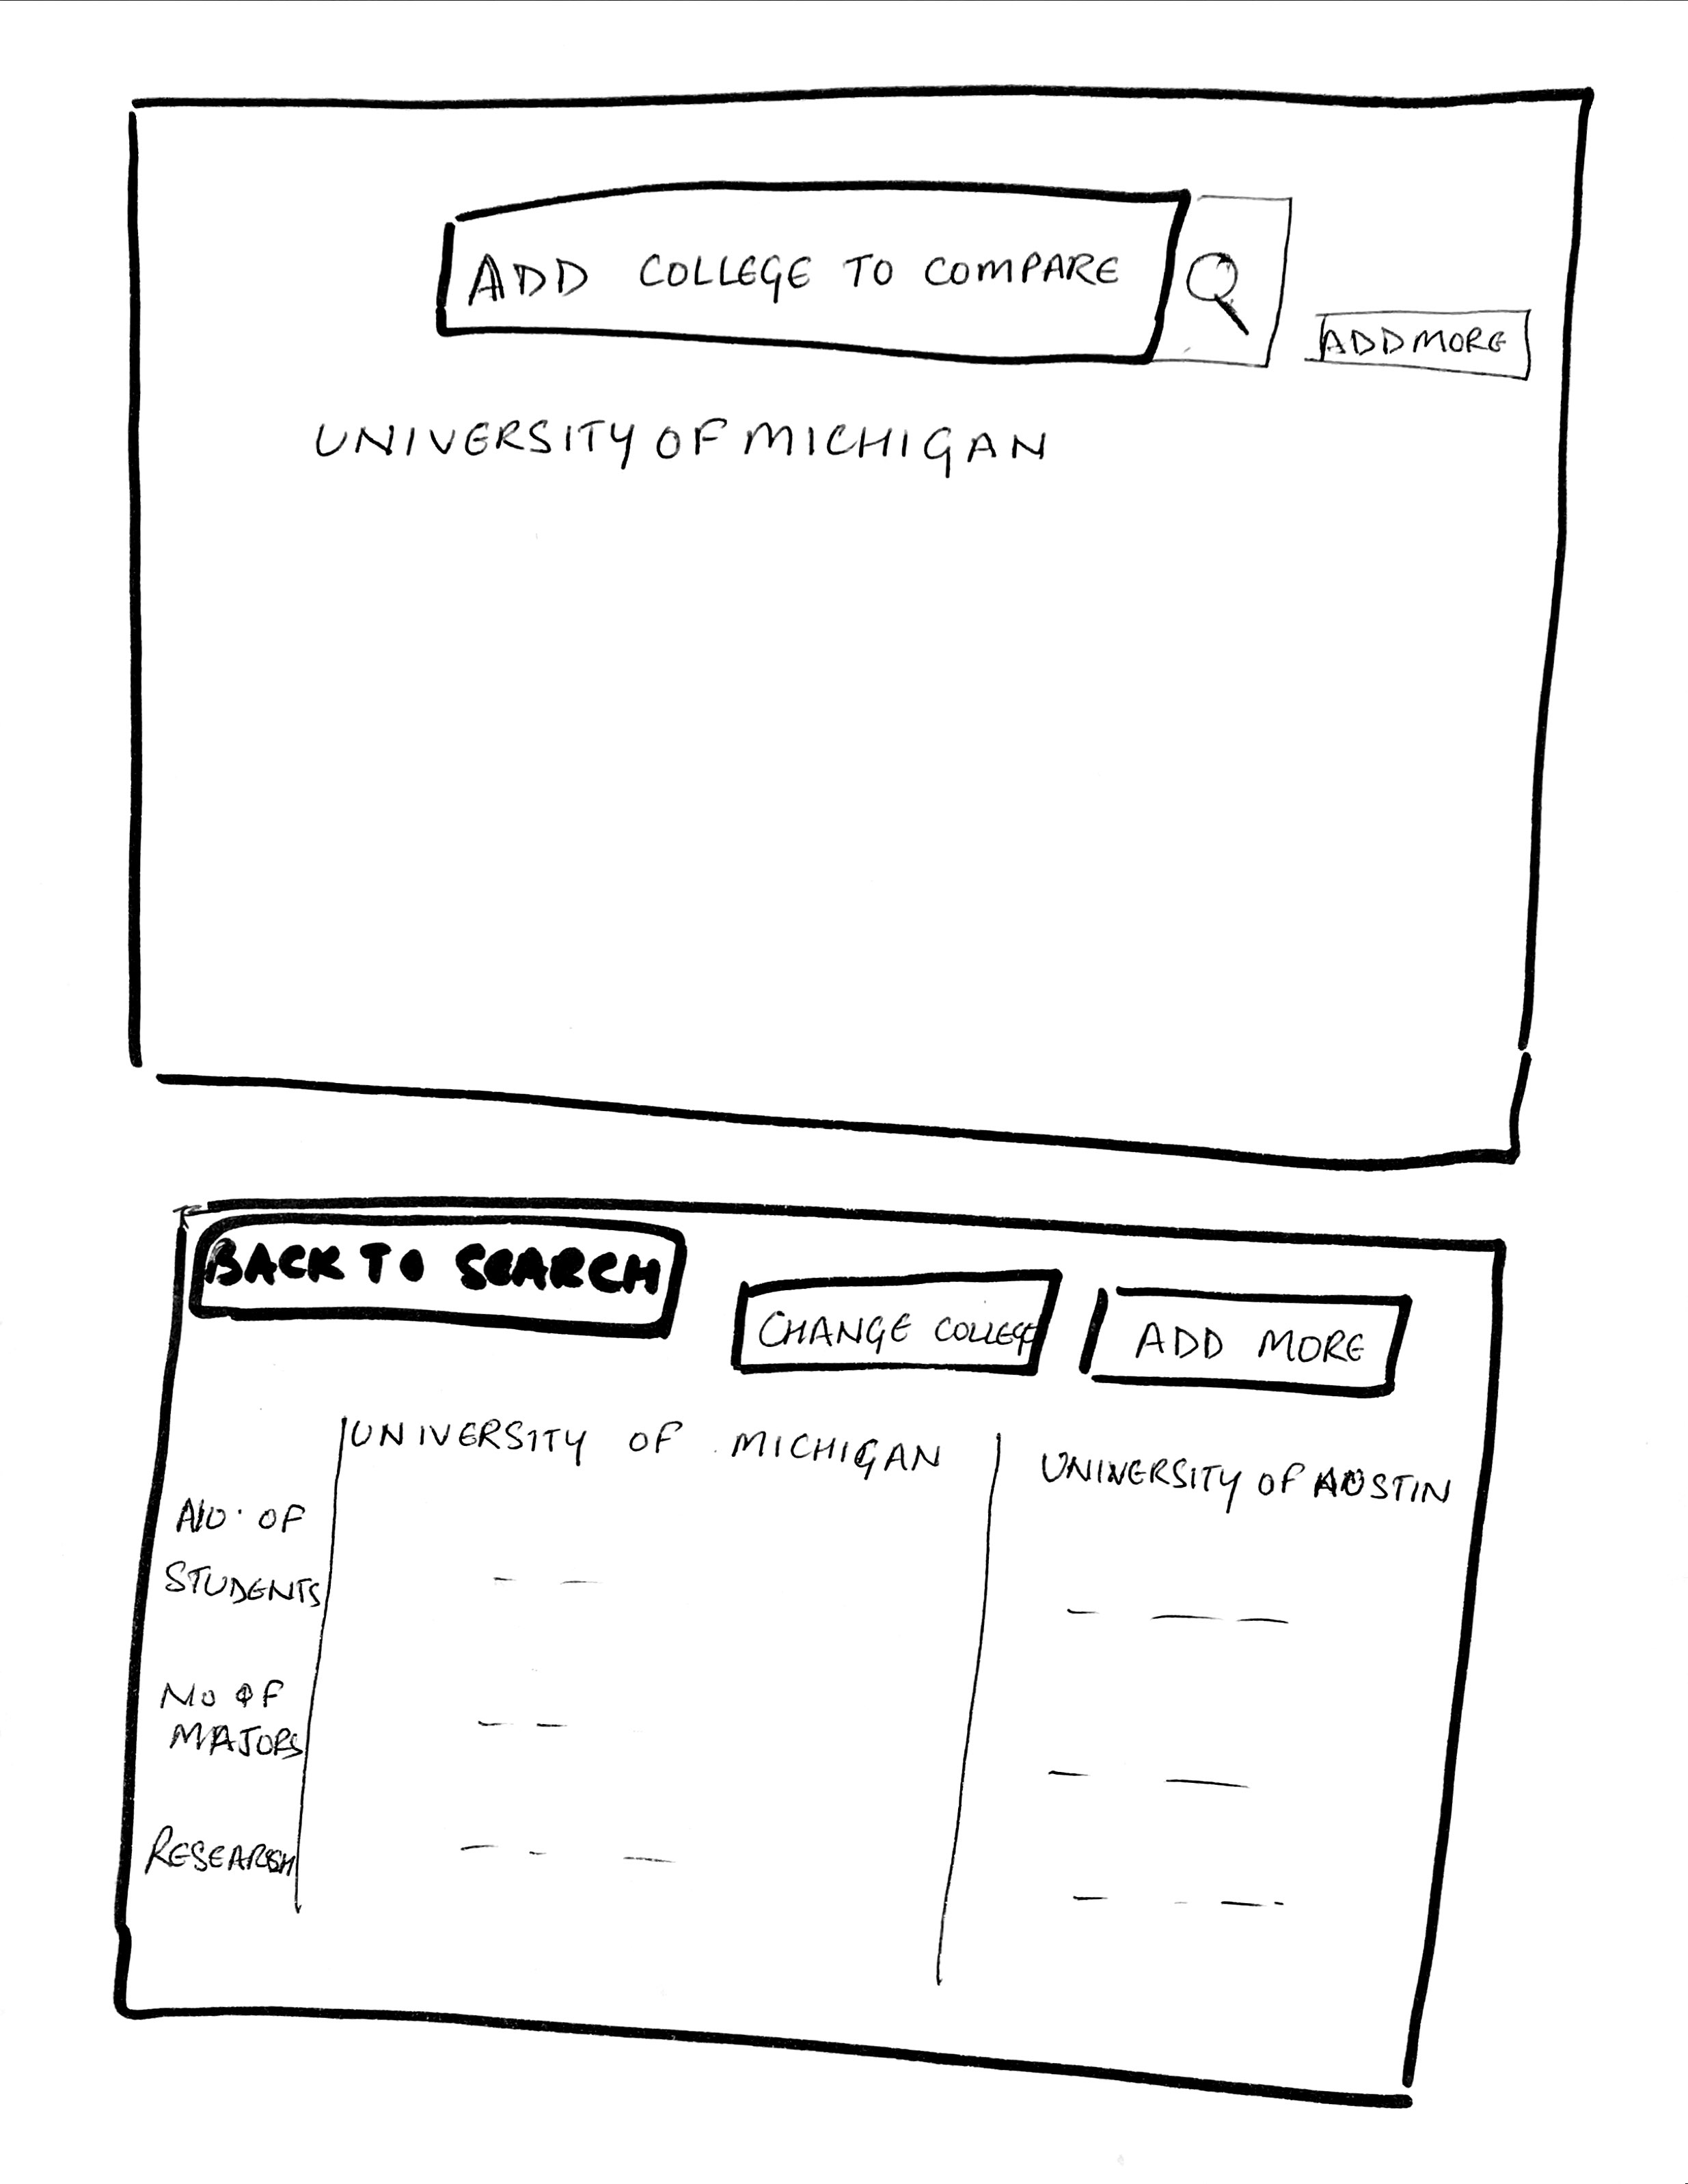 ADD COLLEGE TO COMPARE
ADD MORE
UNIVERSITY OF MICHIGAN
BACK TO SEARCH
CHANGE COLLEGE
ADD MORE
UNIVERSITY OF MICHIGAN
UNIVERSITY OF AUSTIN
NO. OF
STUDENTS
NO OF
MAJORS
RESEARCH